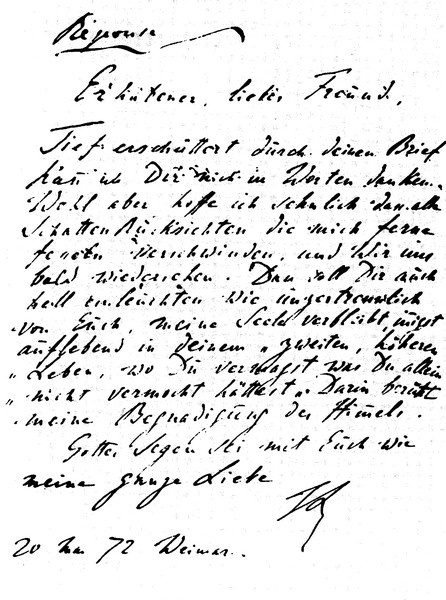 Réponse
Erhabener, lieber Freund,
Tief erschüttert durch deinen Brief
kann ich Dir nicht in Worten danken.
Wohl aber hoffe ich sehnlich dass alle
Schatten Rücksichten die mich ferne
verschwinden, und Wir uns
bald wiedersehen. Dan soll Dir auch
hell einleuchten wie ungertrennlich
von Euch, meine Seele verbliebt
auflebend in deinem „zweiten, höheren
„Leben, wo Du vermagst was Du allein
„nicht vermocht hättest". Darin beruht
meine Begnadigung des Himels.
Gottes Segen sei mit Euch wie
meine ganze Liebe
20 72 Weimar.